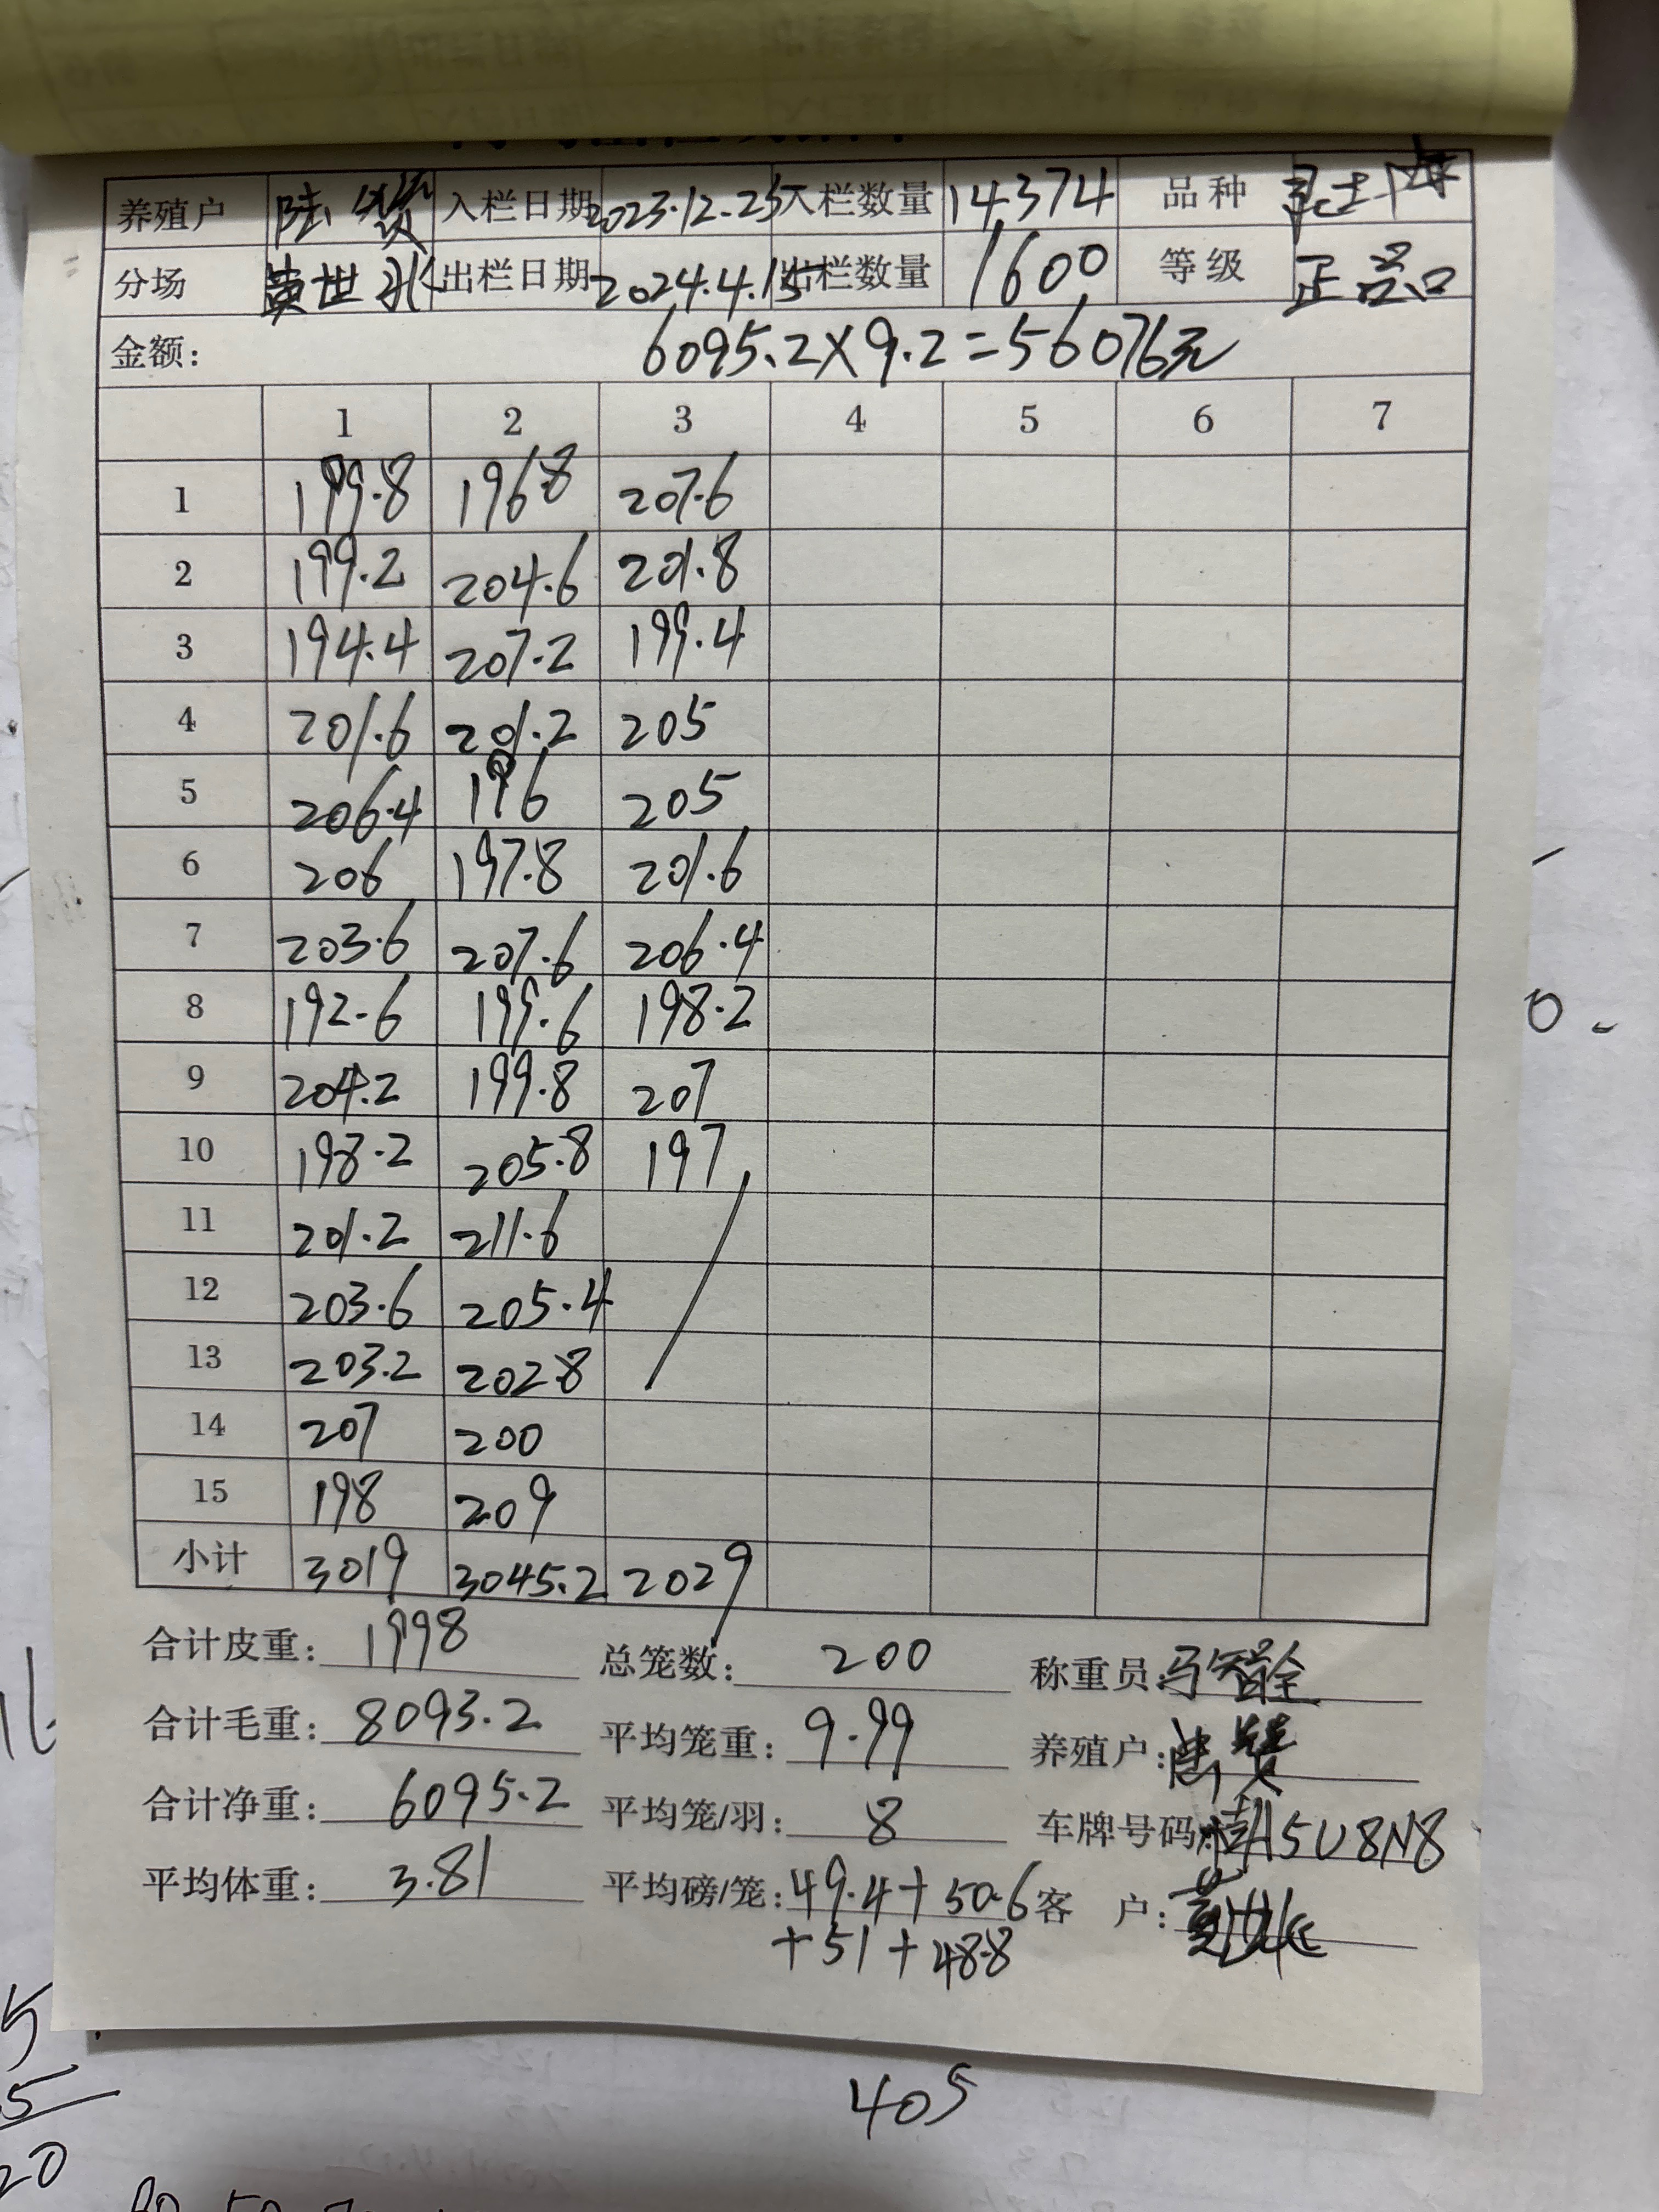 养殖户 陆贤 入栏日期 2023.12.25 入栏数量 14374 品种
分场 黄世兆 出栏日期 2024.4.15 出栏数量 1600 等级 正品
金额: 6095.2×9.2=56076元
1 2 3 4 5 6 7
1 199.8 196.8 207.6
2 199.2 204.6 201.8
3 194.4 207.2 199.4
4 201.6 201.2 205
5 206.4 196 205
6 206 197.8 201.6
7 203.6 207.6 206.4
8 192.6 199.6 198.2
9 204.2 199.8 207
10 198.2 205.8 197
11 201.2 211.6
12 203.6 205.4
13 203.2 202.8
14 207 200
15 198 209
小计 3019 3045.2 2029
合计皮重: 1998 总笼数: 200 称重员:
合计毛重: 8093.2 平均笼重: 9.99 养殖户: 陆贤
合计净重: 6095.2 平均笼/羽: 8 车牌号码: 桂A5U8N8
平均体重: 3.81 平均磅/笼: 49.4+50.6 客 户:
+51+48.8
405